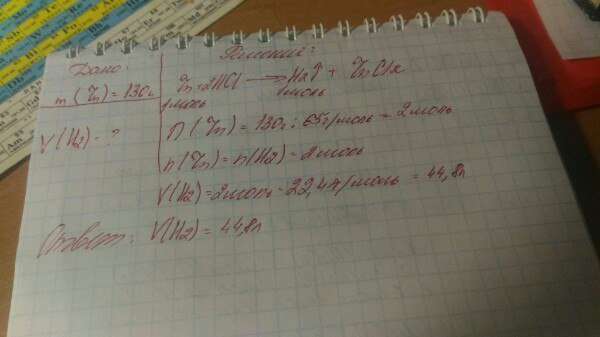 Дано:
m(Zn) = 130г
V(H2) - ?
Решение:
Zn + 2HCl → H2↑ + ZnCl2
1моль 1моль
n(Zn) = 130г : 65г/моль = 2моль
n(Zn) = n(H2) - 2моль
V(H2) = 2моль · 22,4л/моль = 44,8л
Ответ: V(H2) = 44,8л